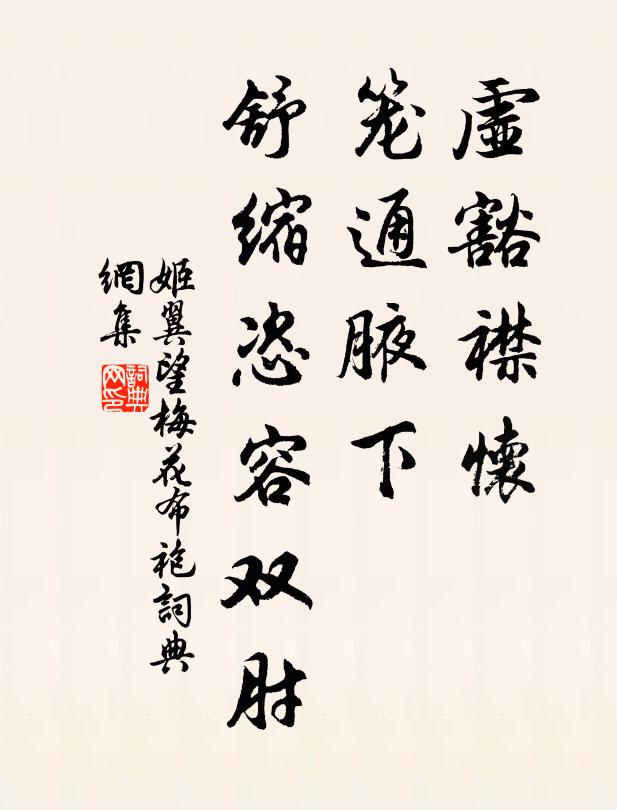 虚豁襟懷
笼通腋下
舒缩恣容双肘
姬翼望梅花布袍詞典
網集
詞典
网印